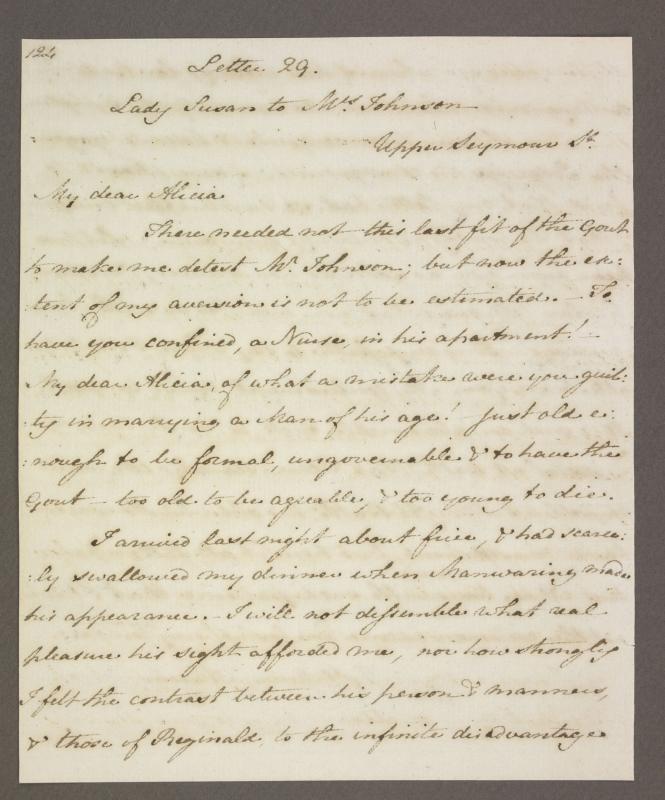 124
Letter 29.
Lady Susan to Mrs. Johnson
Upper Seymour St.
My dear Alicia
There needed not this last fit of the Gout
to make me detest Mr. Johnson; but now the ex:
:tent of my aversion is not to be estimated. - To
have you confined, a Nurse, in his apartment! -
My dear Alicia, of what a mistake were you guil:
:ty in marrying a Man of his age! - just old e:
:nough to be formal, ungovernable & to have the
Gout - too old to be agreable, & too young to die.
I arrived last night about five, & had scarce:
:ly swallowed my dinner when Manwaring made
his appearance. - I will not dissemble what real
pleasure his sight afforded me, nor how strongly
I felt the contrast between his person & manners,
& those of Reginald, to the infinite disadvantage